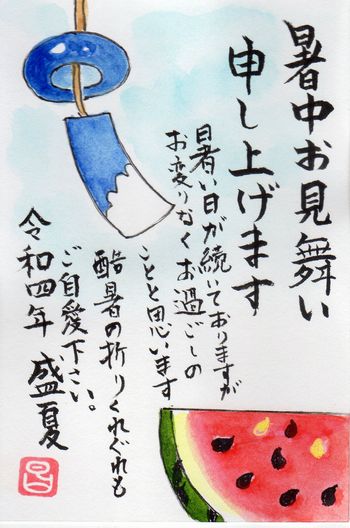 暑中お見舞い
申し上げます
暑い日が続いておりますが
お変りなくお過ごしの
ことと思います
酷暑の折りくれぐれも
ご自愛下さい。
令和四年 盛夏